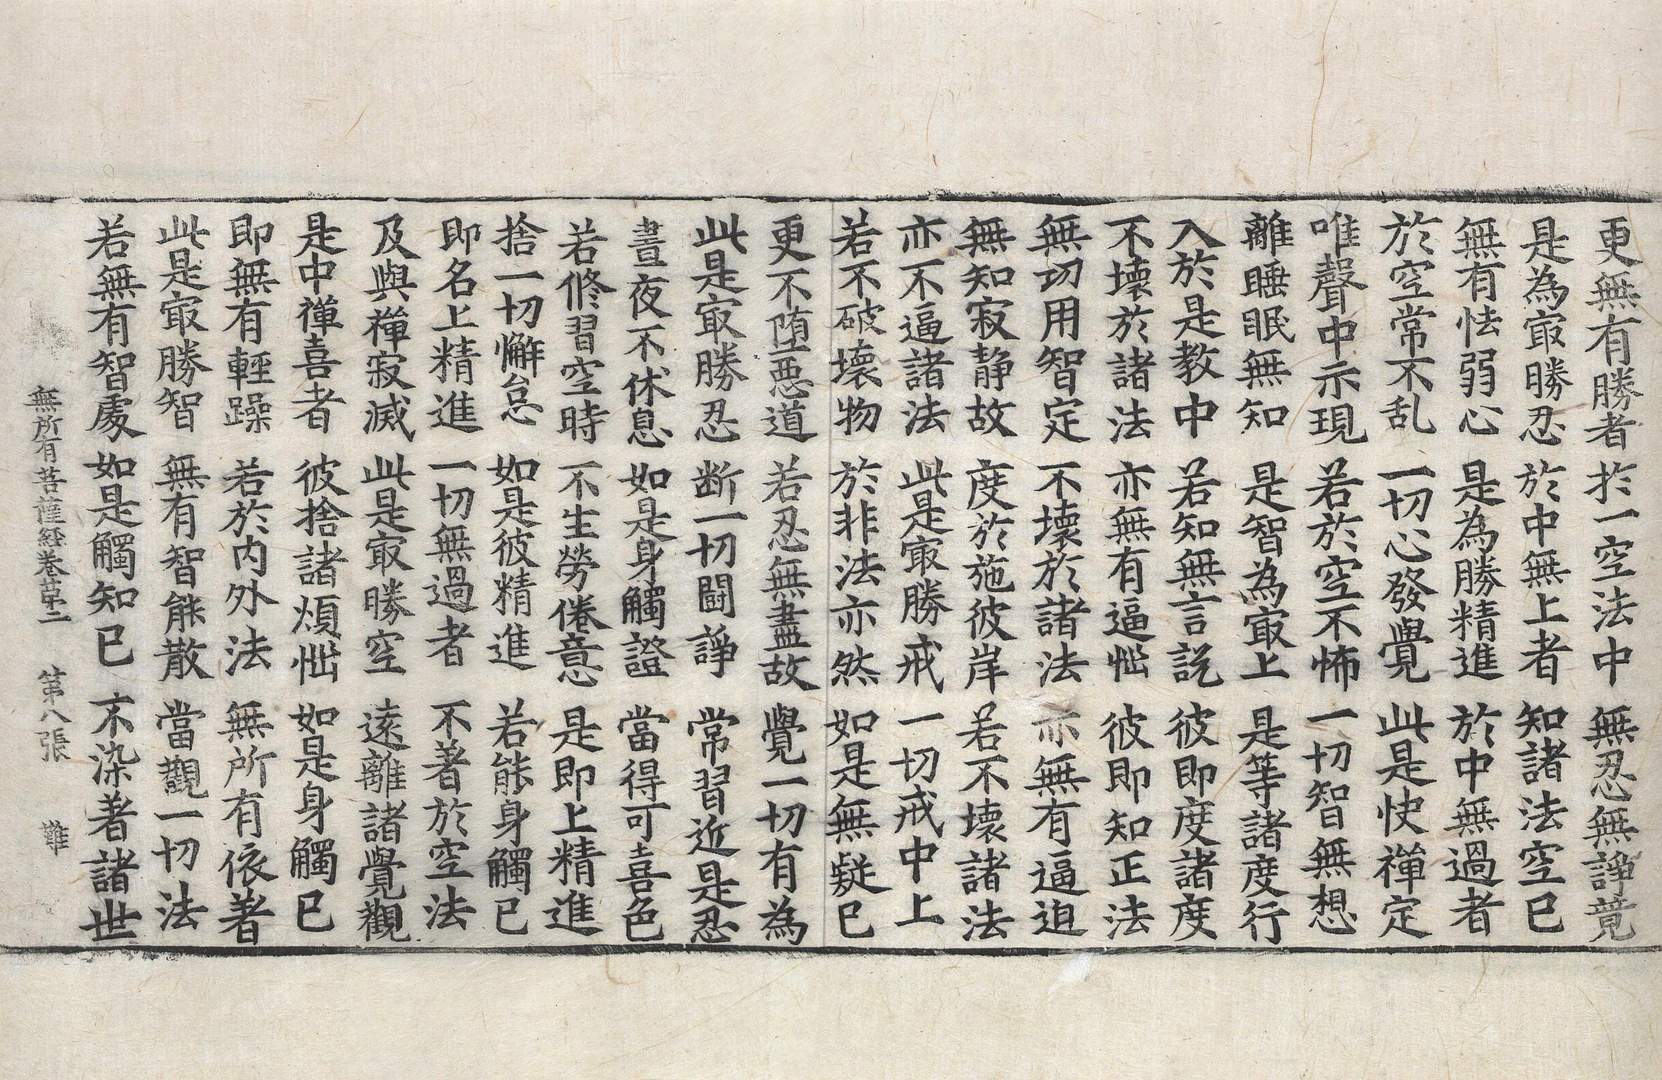 更無有勝者 扵一空法中 無忍無諍竟
是為㝡勝忍 於中無上者 知諸法空已
無有怯弱心 是為勝精進 於中無過者
於空常不乱 一切心發覺 此是快禅定
唯聲中示現 若於空不怖 一切智無想
離睡眠無知 是智為㝡上 是等諸度行
入於是教中 若知無言説 彼即度諸度
不壞於諸法 亦無有逼惱 彼即知正法
無㓛用智定 不壞於諸法 亦無有逼迫
無知寂静故 度於施彼岸 若不壞諸法
亦不逼諸法 此是㝡勝戒 一切戒中上
若不破壞物 於非法亦然 如是無疑已
更不堕惡道 若忍無盡故 覺一切有為
此是㝡勝忍 断一切闘諍 常習近是忍
晝夜不休息 如是身觸證 當得可喜色
若修習空時 不生勞倦意 是即上精進
捨一切懈怠 如是彼精進 若能身觸已
即名上精進 一切無過者 不著於空法
及與禅寂滅 此是㝡勝空 遠離諸覺觀
是中禅喜者 彼捨諸煩惱 如是身觸已
即無有輕躁 若於内外法 無所有依著
此是㝡勝智 無有智能散 當觀一切法
若無有智處 如是觸知已 不染著諸世
無所有菩薩経卷苐二 第八張 難